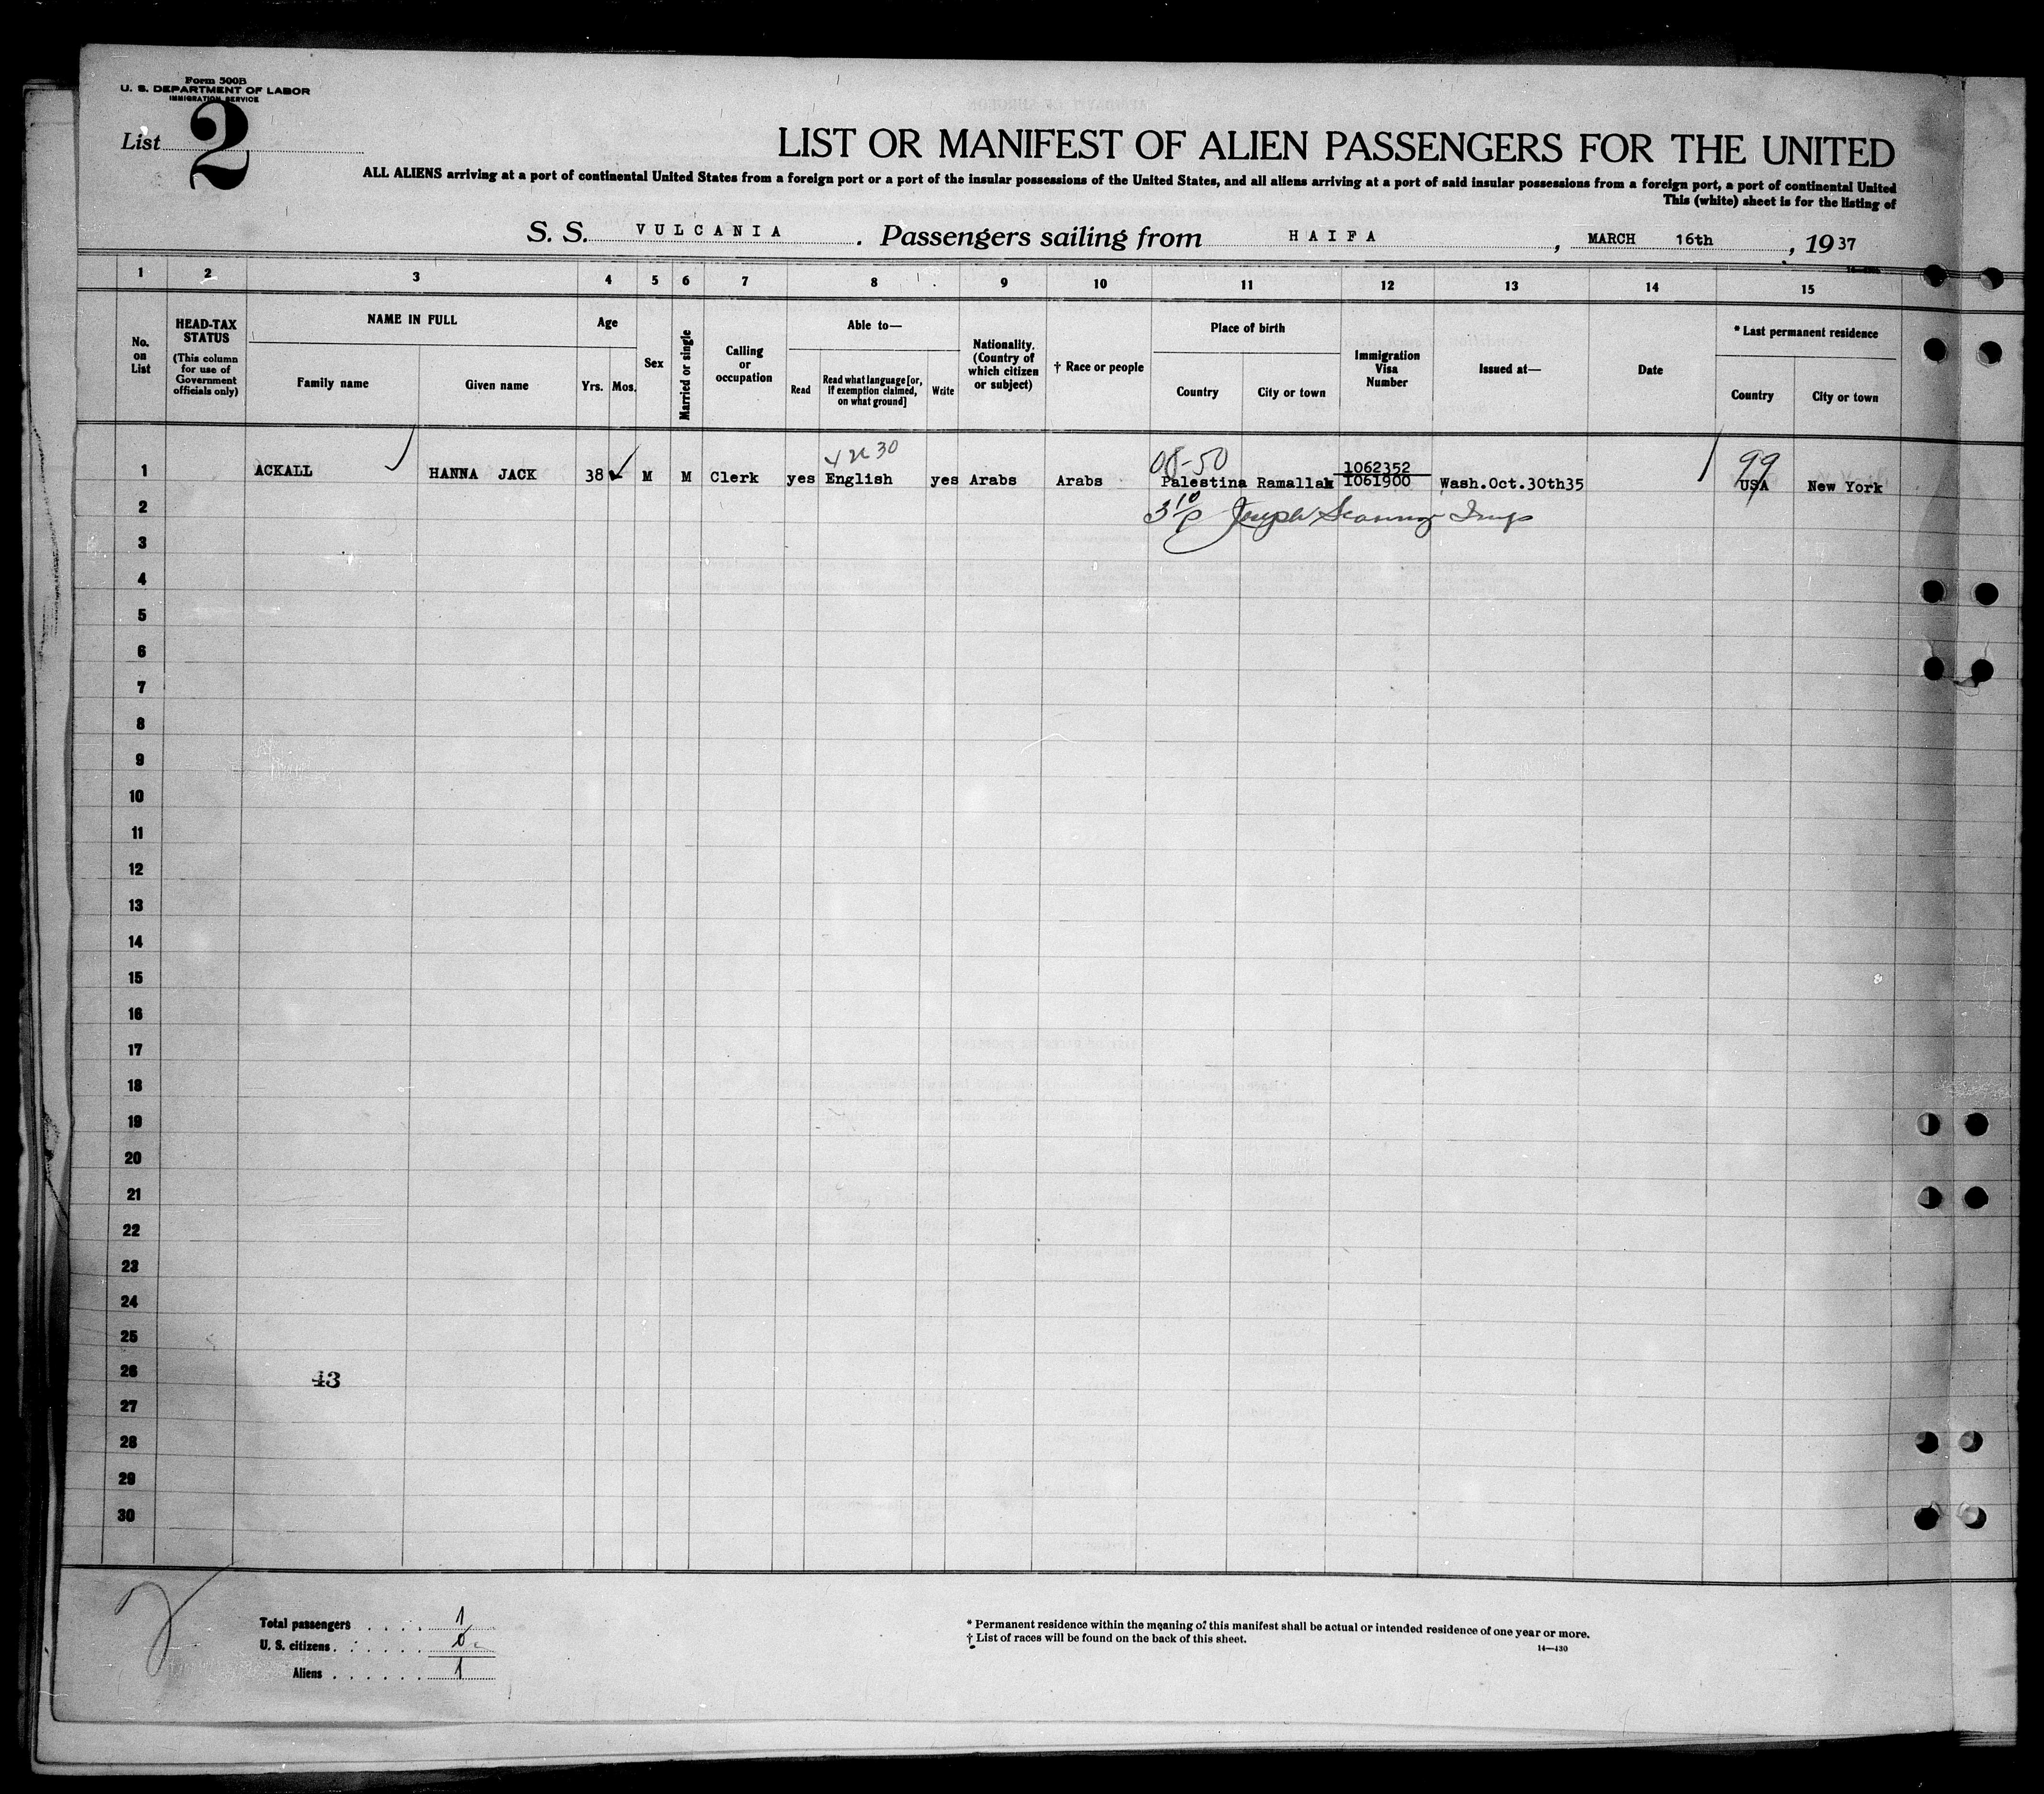 Form 500B
U. S. DEPARTMENT OF LABOR
IMMIGRATION SERVICE
List 2
LIST OR MANIFEST OF ALIEN PASSENGERS FOR THE UNITED
ALL ALIENS arriving at a port of continental United States from a foreign port or a port of the insular possessions of the United States, and all aliens arriving at a port of said insular possessions from a foreign port, a port of continental United
This (white) sheet is for the listing of
S. S. VULCANIA. Passengers sailing from HAIFA, MARCH 16th, 1937
1 2 3 4 5 6 7 8 9 10 11 12 13 14 15
No. on List
HEAD-TAX STATUS
(This column for use of Government officials only)
NAME IN FULL
Family name
Given name
Age
Yrs. Mos.
Sex
Married or single
Calling or occupation
Able to—
Read
Read what language [or, if exemption claimed, on what ground]
Write
Nationality. (Country of which citizen or subject)
† Race or people
Place of birth
Country
City or town
Immigration Visa Number
Issued at—
Date
* Last permanent residence
Country
City or town
30
50
99
1062352
1 ACKALL HANNA JACK 38 M M Clerk yes English yes Arabs Arabs Palestina Ramallah 1061900 Wash.Oct.30th35 USA New York
2 Joseph
3
4
5
6
7
8
9
10
11
12
13
14
15
16
17
18
19
20
21
22
23
24
25
26
43
27
28
29
30
Total passengers . . . . 1
U. S. citizens . . . . . 0
Aliens . . . . . . 1
* Permanent residence within the meaning of this manifest shall be actual or intended residence of one year or more.
† List of races will be found on the back of this sheet.
14—430